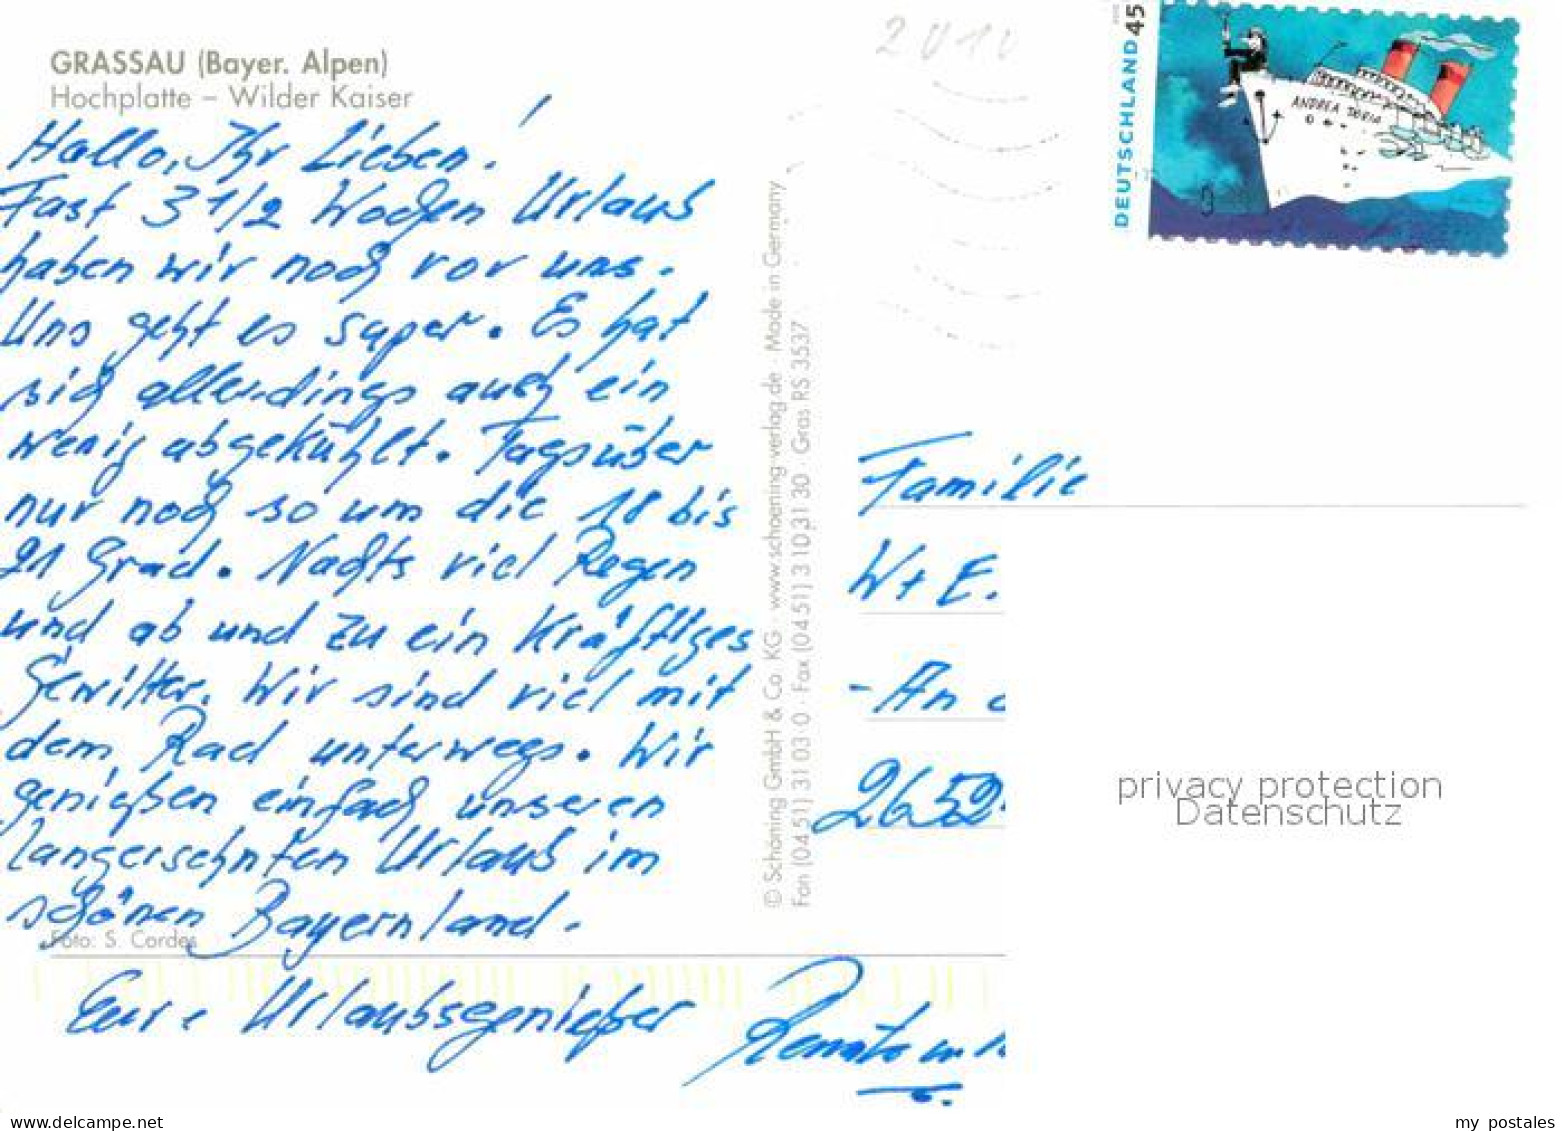 GRASSAU (Bayer. Alpen)
Hochplatte – Wilder Kaiser
Hallo, Ihr Lieben!
Fast 3 1/2 Wochen Urlaub
haben wir noch vor uns.
Uns geht es super. Es hat
sich allerdings auch ein
wenig abgekühlt. Tagsüber
nur noch so um die 18 bis
21 Grad. Nachts viel Regen
und ab und zu ein kräftiges
Gewitter. Wir sind viel mit
dem Rad unterwegs. Wir
genießen einfach unseren
langersehnten Urlaub im
schönen Bayernland.
Foto: S. Cordes
Eure Urlaubsgenießer
Renate u.
© Schöning GmbH & Co. KG · www.schoening-verlag.de · Made in Germany
Fon (04 51) 31 03-0 · Fax (04 51) 3 10 31 30 · Gras RS 3537
2010
DEUTSCHLAND 45
ANDREA DORIA
Familie
W + E.
- An
2652
privacy protection
Datenschutz
www.delcampe.net
my_postales